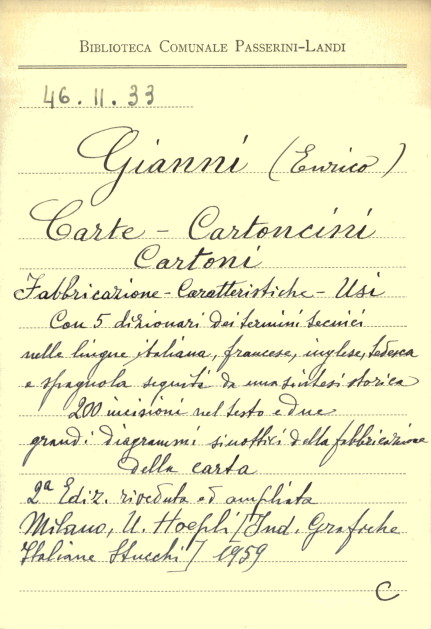 BIBLIOTECA COMUNALE PASSERINI-LANDI
46.II.33
Gianni (Enrico)
Carte - Cartoncini
Cartoni
Fabbricazione - Caratteristiche - Usi
Con 5 dizionari dei termini tecnici
nelle lingue italiana, francese, inglese, tedesca
e spagnola seguita da una sintesi storica
200 incisioni nel testo e due
grandi diagrammi sinottici della fabbricazione
della carta
2ª Ediz. riveduta ed ampliata
Milano, U. Hoepli [Ind. Grafiche
Italiane Stucchi] 1959
C